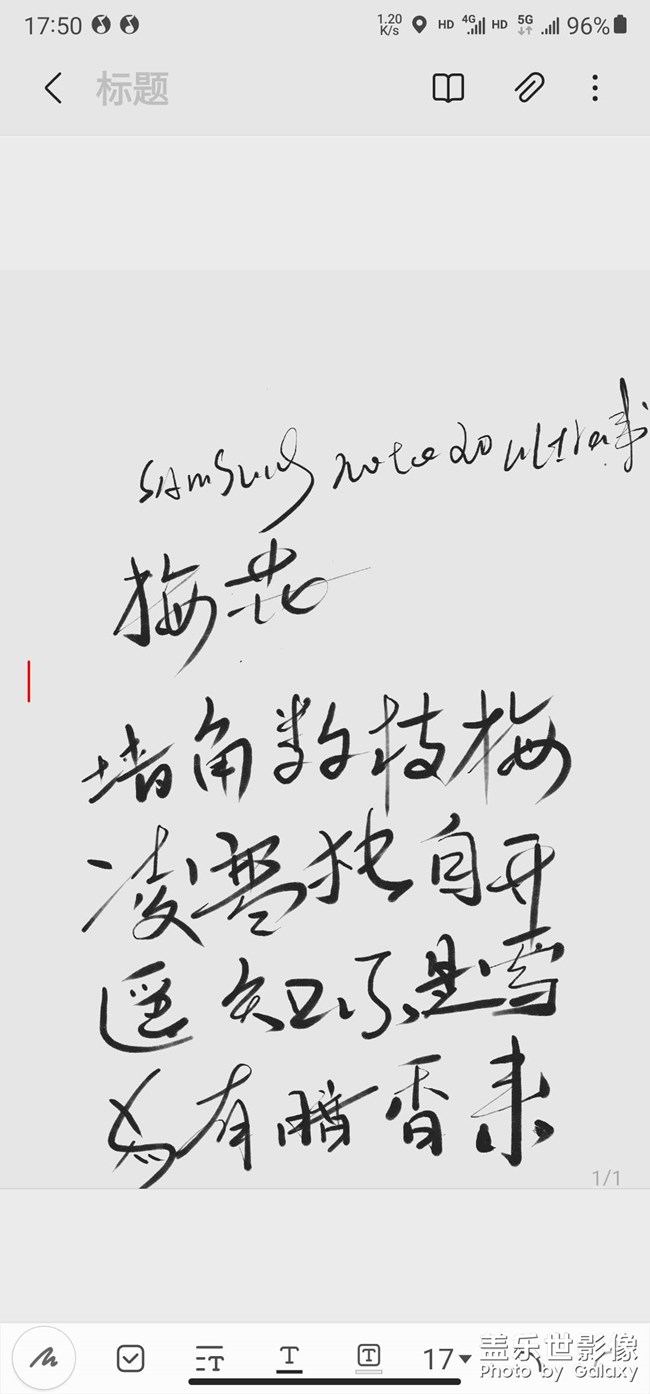 17:50
1.20 K/s HD 4G HD 5G 96%
标题
SAMSUNG note20 ultra
梅花
墙角数枝梅
凌独自开
遥知不是雪
为有暗香来
1/1
T T T 17
盖乐世影像
Photo by Galaxy